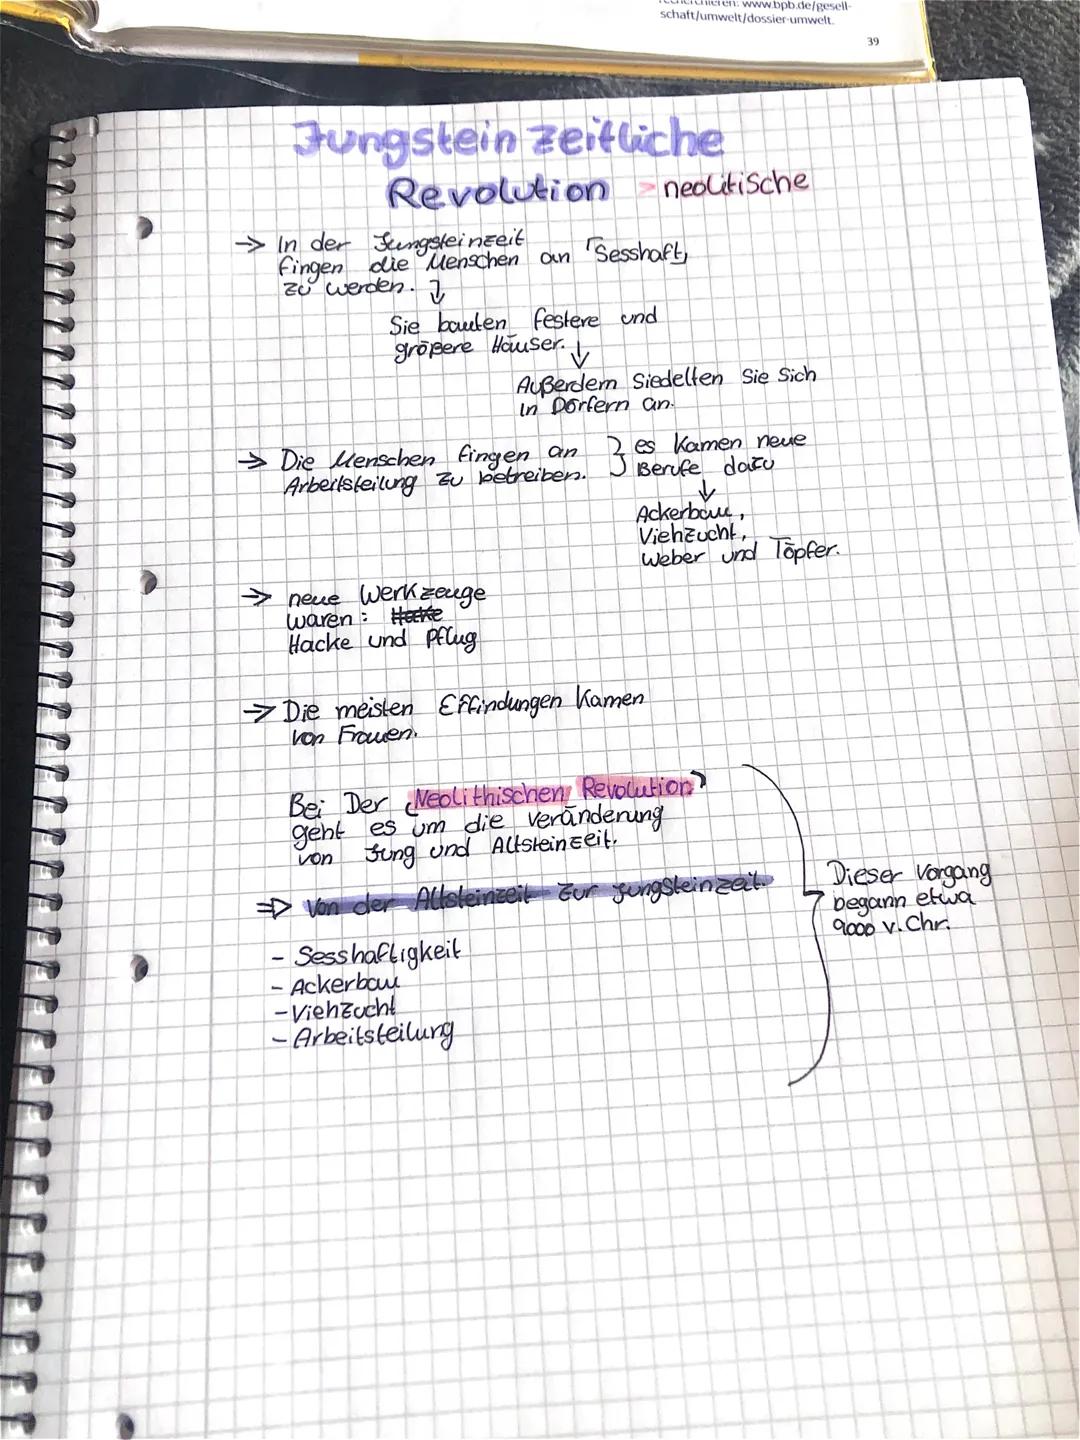 schaft/umwelt/dossier-umwelt.
39
Jungsteinzeitliche
Revolution > neolitische
→ In der Jungsteinzeit
fingen die Menschen an "Sesshaft"
zu werden.
Sie bauten festere und
größere Häuser.
Außerdem Siedelten Sie Sich
in Dörfern an.
→ Die Menschen fingen an
Arbeitsteilung zu betreiben.
} es Kamen neue
Berufe dazu
Ackerbau,
Viehzucht,
Weber und Töpfer.
→ neue Werkzeuge
waren: Hacke
Hacke und Pflug
→ Die meisten Erfindungen Kamen
von Frauen.
Bei Der "Neolithischen Revolution"
geht es um die veränderung
von Jung und Altsteinzeit.
⇒ Von der Altsteinzeit zur jungsteinzeit.
- Sesshaftigkeit
- Ackerbau
- Viehzucht
- Arbeitsteilung
Dieser Vorgang
begann etwa
9000 v. Chr.